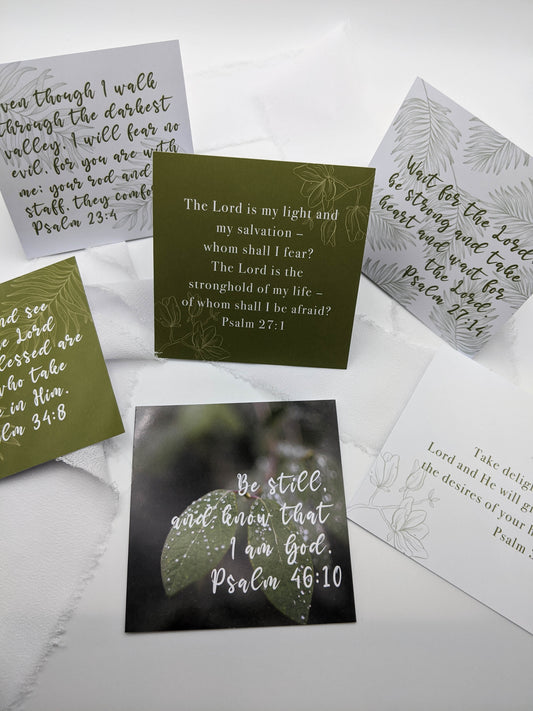 ven though I walk
through the darkest
valley, I will fear no
evil, for you are with
me; your rod and
staff, they comfo
Psalm 23:4
The Lord is my light and
my salvation –
whom shall I fear?
The Lord is the
stronghold of my life –
of whom shall I be afraid?
Psalm 27:1
Wait for the Lord
be strong and take
heart and wait for
the Lord.
Psalm 27:14
nd see
e Lord
lessed are
who take
e in Him.
lm 34:8
Be still,
and know that
I am God.
Psalm 46:10
Take delig
Lord and He will g
the desires of your h
Psalm